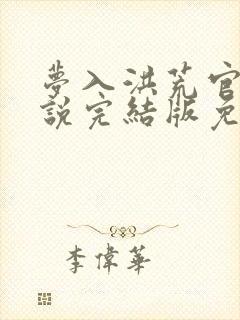 夢入洪荒官
說完結版免
李偉華